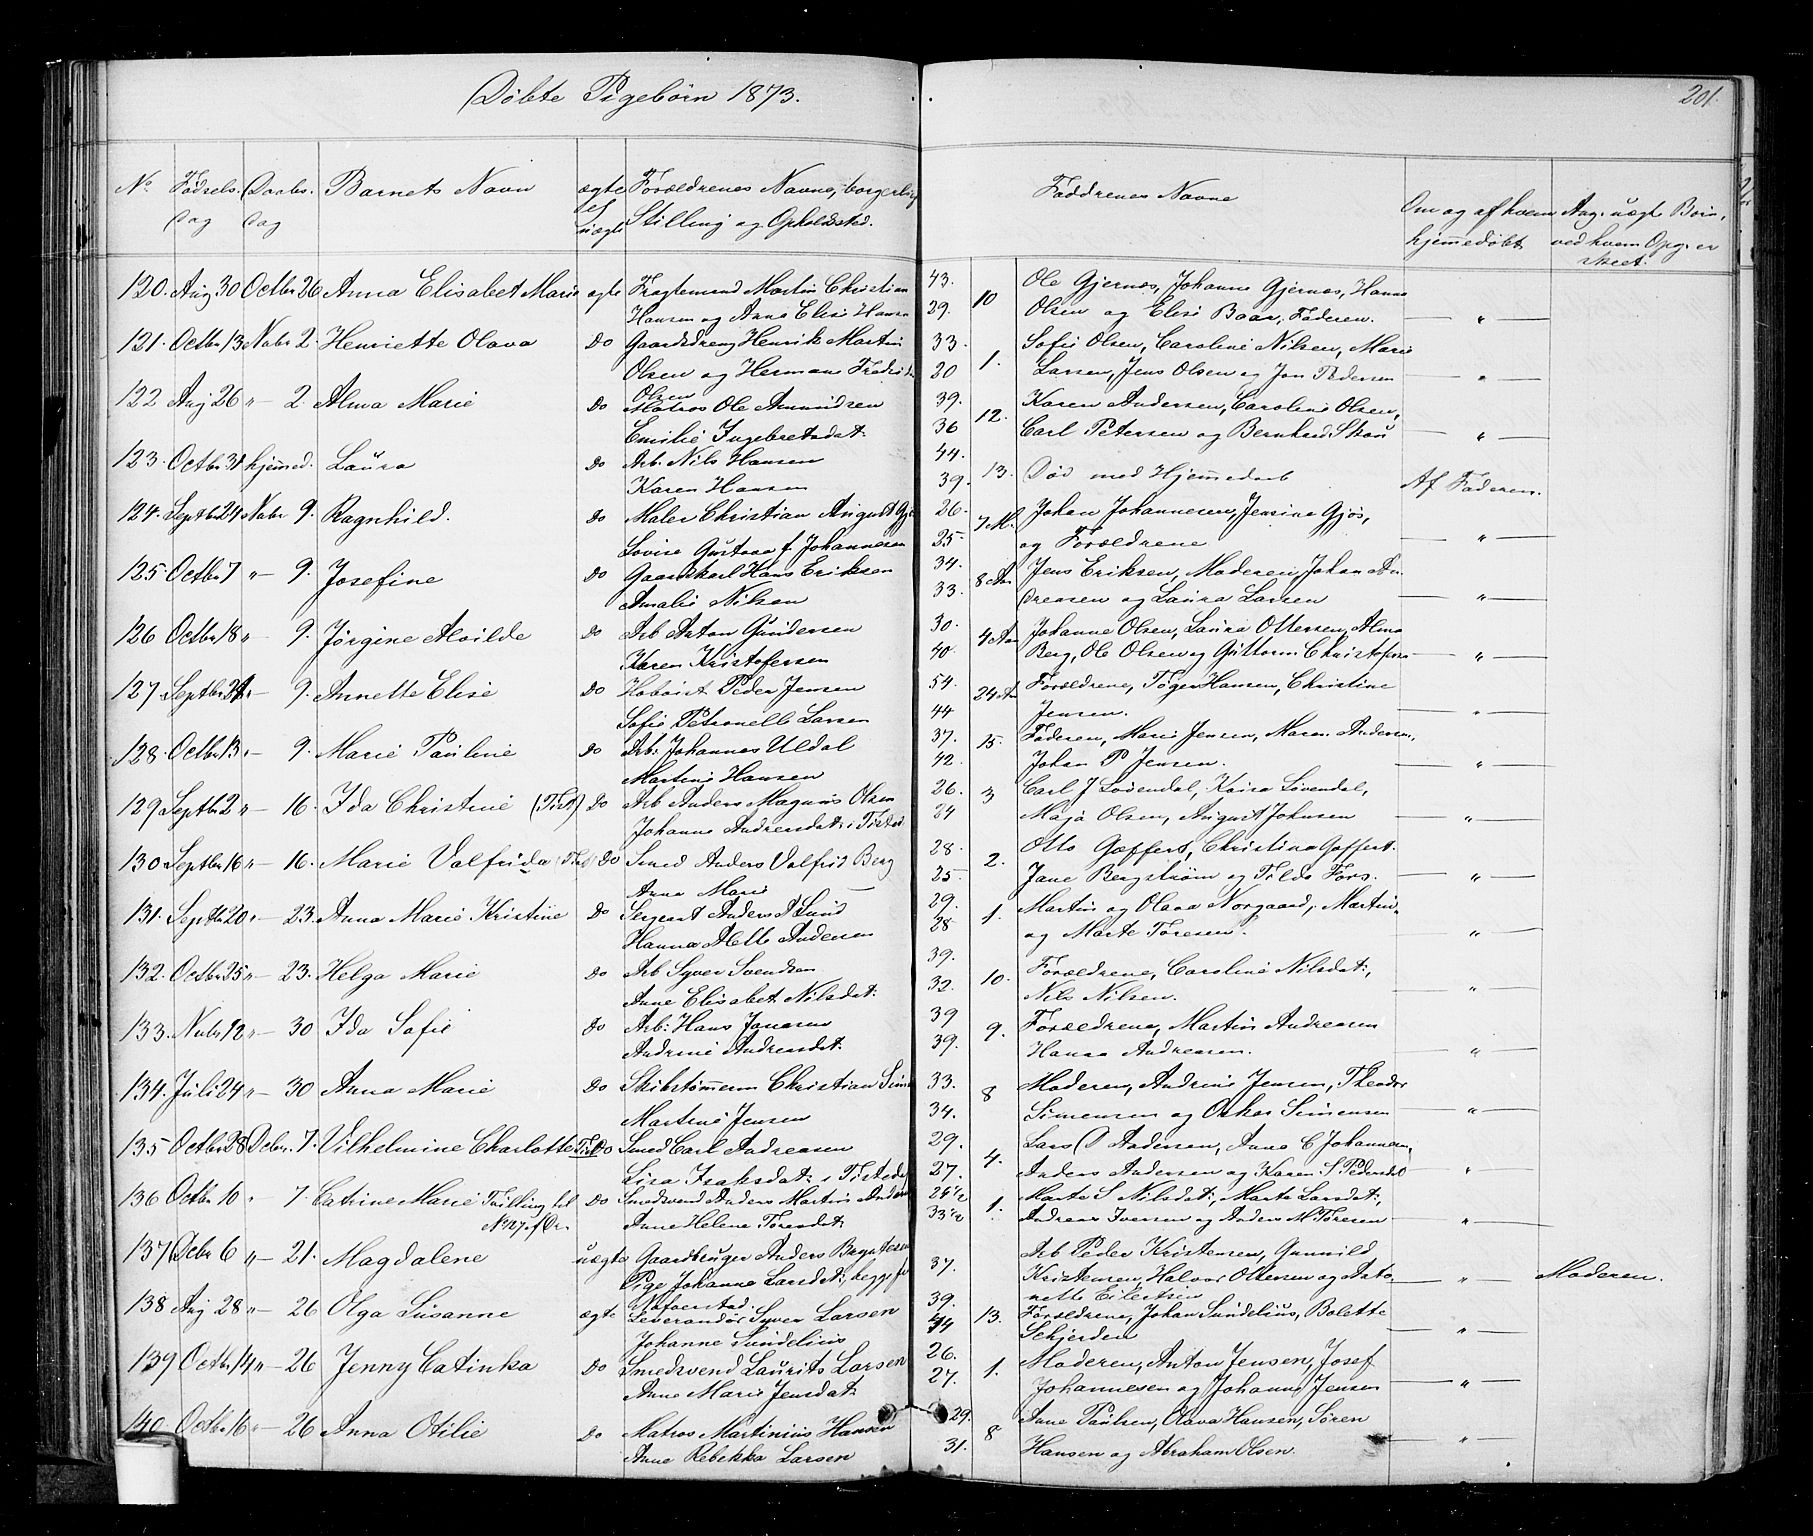 Döbte Pigebörn 1873.
201.
No Födsels Dag Daabs Dag Barnets Navn ægte el uægte Forældrenes Navne, borgerlig Stilling og Opholdssted. Faddrenes Navne Om og af hvem hjemmedøbt Ang. uægte Börn, ved hvem Opg. er skeet.
120. Aug 30 Octbr 26 Anna Elisabet Marie ægte Fragtemand Martin Christian 43. 10 Ole Gjernæs, Johanne Gjernæs, Hanna
Hansen og Anna Elise Hansen 29. Olsen og Elise Baar, Faderen. — " —
121. Octbr 13 Nvbr 2. Henriette Olava Do Gaardsdreng Henrik Martin 33. 1. Sofie Olsen, Caroline Nilsen, Marie
Olsen og Hermane Fredrik 20 Larsen, Jens Olsen og Jon Pedersen — " —
Olsen
122 Aug 26 " – 2. Alma Marie Do Matros Ole Amundsen 39. 12. Karen Andersen, Caroline Olsen,
Emilie Ingebretsdat: 36 Carl Petersen og Bernhard Skou — " —
123. Octbr 31 hjemmed. Laura Do Arb. Nils Hansen 44. 13. Död med Hjemmedaab Af Faderen.
Karen Hansen 39.
124. Septbr 24 Nvbr 9. Ragnhild. Do Maler Christian August Gjös 26. 7 M. Johan Johannesen, Jensine Gjös,
Lovise Gustava f. Johannesen 25. og Forældrene — " —
125 Octbr 7 " – 9. Josefine Do Gaardskarl Hans Eriksen 34. 8 Aar Jens Eriksen, Moderen, Johan An-
Amalie Nilsen 33. dreasen og Laura Larsen — " —
126 Octbr 18 " 9. Jörgine Alvilde Do Arb Anton Gundersen 30. 4 Aar Johanne Olsen, Laura Ottersen, Alma
Karen Kristofersen 40. Berg, Ole Olsen og Guttorm Christofersen — " —
127. Septbr 21 " – 9. Annette Elise Do Peder Jensen 54. 24 Aar Forældrene, Töger Hansen, Christine
Sofie Petronelle Larsen 44 Jensen. — " —
128. Octbr 13 " – 9. Marie Pauline Do Arb: Johannes Uldal 37. 15. Faderen, Marie Jensen, Maren Andersen,
Martine Hansen 42. Johan P Jensen. — " —
129 Septbr 2 " – 16. Ida Christine (Tist) Do Arb Anders Magnus Olsen 26. 3 Carl J Lövendal, Kaisa Lövendal,
Johanne Andreasdat: i Tistedal 24 Maja Olsen, August Johnsen — " —
130 Septbr 16 " – 16. Marie Valfrida (Tist) Do Smed Anders Valfrid Berg 28. 2. Otto Gæffert, Christina Gæffert.
Anna Marie — 25. Jane Bergström og Tilda Fors. — " —
131. Septbr 20 " – 23. Anna Marie Kristine Do Sergeant Anders P Lund 29. 1. Martin og Olava Norgaard, Martin
Hanna Mette Andersen 28 og Marte Töresen. — " —
132. Octbr 25 " – 23. Helga Marie Do Arb Syver Svendsen 39. 10. Forældrene, Caroline Nilsdat:,
Anne Elisabet Nilsdat: 32. Nils Nilsen. — " —
133. Nvbr 12 " – 30 Ida Sofie Do Arb: Hans Jonasen 39 9. Forældrene, Martin Andreasen
Andrine Andreasdat: 39. Hanna Andreasen. — " —
134. Juli 24 " – 30 Anna Marie Do Skibstömmerm Christian Simen 33. 8 Moderen, Andrine Jensen, Theodor
Martine Jensen 34. Simensen og Oskar Simensen — " —
135 Octbr 28 Debr. 7. Vilhelmine Charlotte Tist Do Smed Carl Andreasen 29. 4. Lars P Andersen, Anne C Johannesen,
Lisa Isaksdat: i Tistedal 27. Anders Andersen og Karen S. Pedersdat — " —
136 Octbr 10 " – 7. Catrine Marie Tvilling til Do Smedsvend Anders Martin Andersen 29 1/2 1. Marte S Nilsdat:, Marte Larsdat:,
No 127 Anne Helene Töresdat: 33 1/2 Andreas Iversen og Anders M Töresen — " —
137 Debr 6 " – 21. Magdalene uægte Gaardbruger Anders Bryntesen 37. Arb Peder Kristensen, Gunvild
Pige Johanne Larsdat:, begge fra Kristensen, Halvor Ottersen og Anto- — " — Moderen.
39. nette Eilertsen
138 Aug 28 " – 26 Olga Susanne ægte Leverandör Syver Larsen 44 13. Forældrene, Johan Sundelius, Bolette
Johanne Sundelius Schjerden — " —
139 Octbr 14 " – 26 Jenny Catinka Do Smedsvend Laurits Larsen 26. 1. Moderen, Anton Jensen, Josef
Anne Marie Jensdat: 27. Johannesen og Johanne Jensen — " —
140 Octbr 16 " – 26 Anna Otilie Do Matros Martinius Hansen 29. 8 Anne Paulsen, Olava Hansen, Sören
Anne Rebekka Larsen 31. Hansen og Abraham Olsen. — " —